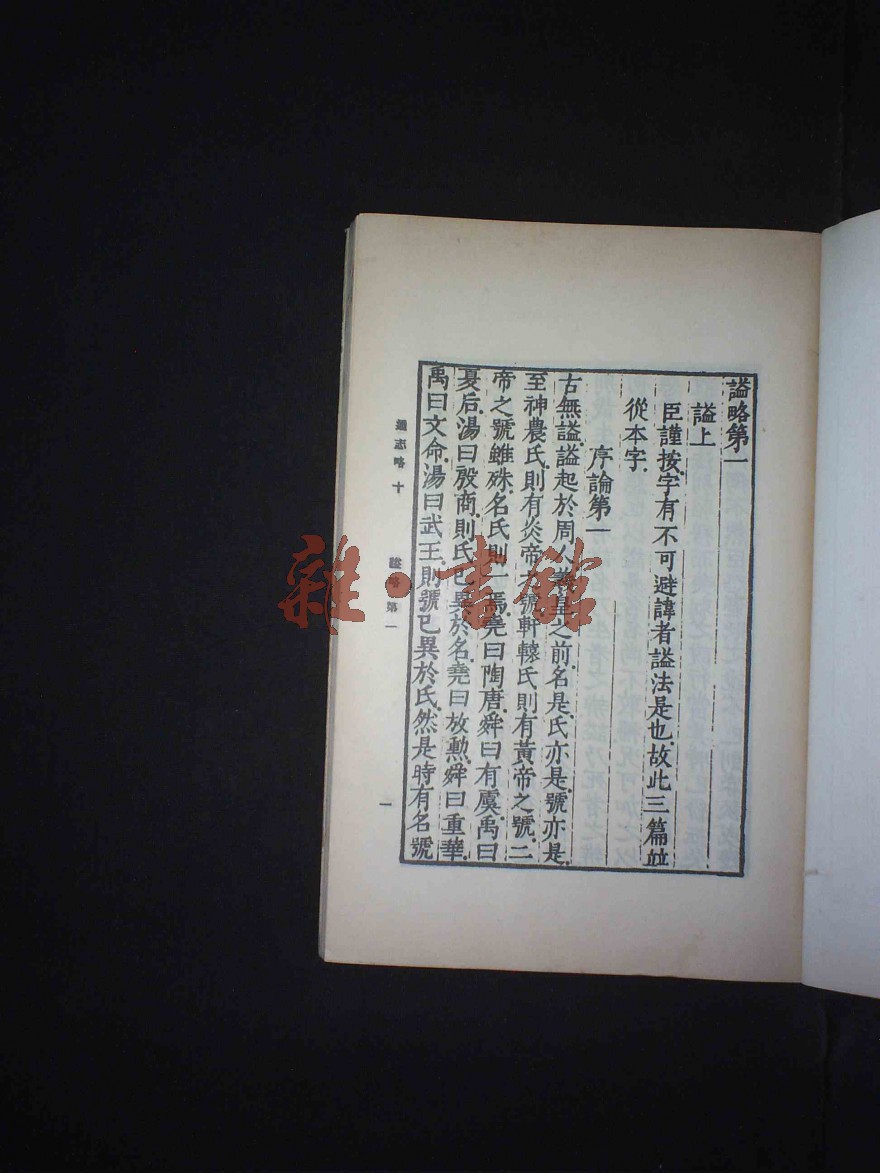 諡略第一
諡上
臣謹按.字有不可避諱者.諡法是也.故此三篇.竝
從本字.
序論第一
古無諡.諡起於周人.羲皇之前.名是.氏亦是.號亦是.
至神農氏.則有炎帝之號.軒轅氏.則有黃帝之號.二
帝之號雖殊.名氏則一焉.堯曰陶唐.舜曰有虞.禹曰
夏后.湯曰殷商.則氏已異於名.堯曰放勲.舜曰重華.
禹曰文命.湯曰武王.則號已異於氏.然是時有名號
通志略 十 諡略第一 一
雜·書館